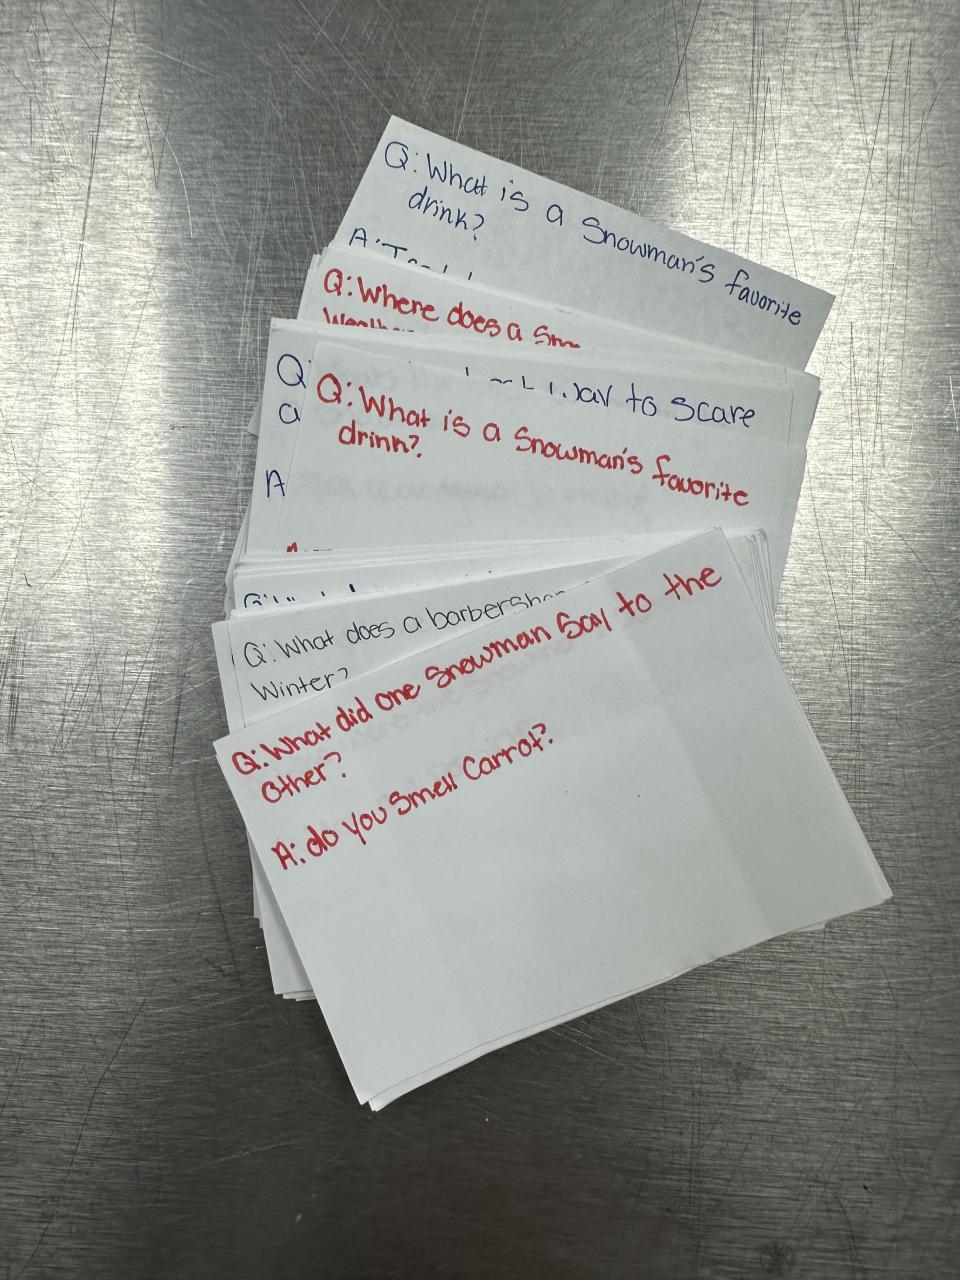 Q: What is a Snowman's favorite
drink?
A:
Q: Where does a
Q: way to scare
a
A
Q: What is a Snowman's favorite
drink?
Q: What does a barbershop
Winter?
Q: What did one Snowman Say to the
Other?
A: do you Smell Carrot?